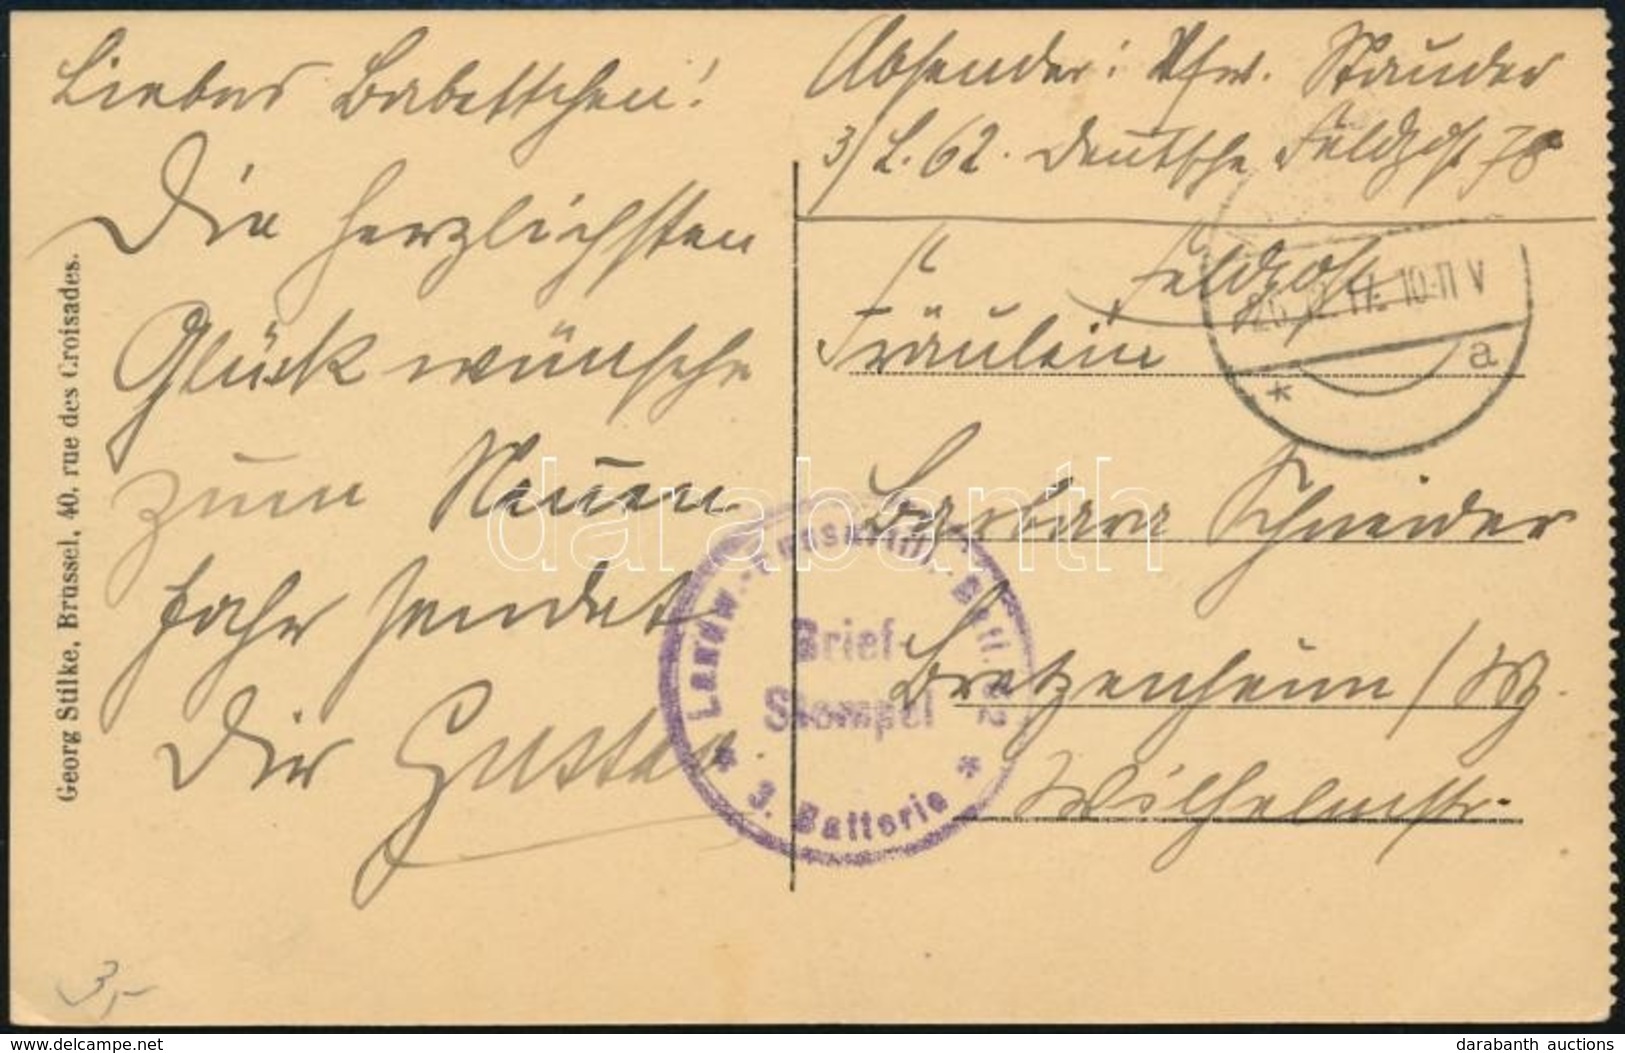 Liebes Babettchen!
Die herzlichsten
Glückwünsche
zum Neuen
Jahr sendet
Dir Gustav.
Georg Stilke, Brüssel, 40, rue des Croisades.
3,-
Absender: Vfw. Stauder
3/L. 62. Deutsche Feldpost 78
Feldpost
10-11 V
* a
Fräulein
Barbara Schneider
Bretzenheim /
Wilhelmstr.
Landw.-Fussartill.-Batl. 62
Brief-
Stempel
* 3. Batterie *
darabanth
www.delcampe.net
darabanth auctions